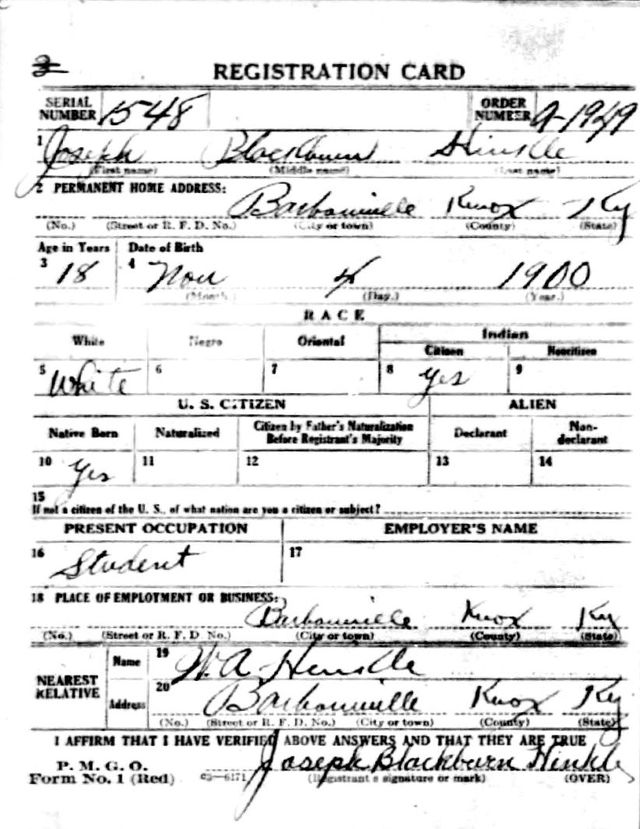 REGISTRATION CARD
SERIAL NUMBER 1548 ORDER NUMBER A-1949
1 Joseph Blackburn Hinkle
(First name) (Middle name) (Last name)
2 PERMANENT HOME ADDRESS:
Barbourville Knox Ky
(No.) (Street or R. F. D. No.) (City or town) (County) (State)
Age in Years Date of Birth
3 18 4 Nov 4 1900
(Month) (Day.) (Year.)
RACE
White Negro Oriental Indian
Citizen Noncitizen
5 White 6 7 8 yes 9
U. S. CITIZEN ALIEN
Native Born Naturalized Citizen by Father's Naturalization Before Registrant's Majority Declarant Non-declarant
10 yes 11 12 13 14
15
If not a citizen of the U. S., of what nation are you a citizen or subject?
PRESENT OCCUPATION EMPLOYER'S NAME
16 Student 17
18 PLACE OF EMPLOYMENT OR BUSINESS:
Barbourville Knox Ky
(No.) (Street or R. F. D. No.) (City or town) (County) (State)
NEAREST RELATIVE Name 19 W. A. Hinkle
Address 20 Barbourville Knox Ky
(No.) (Street or R. F. D. No.) (City or town) (County) (State)
I AFFIRM THAT I HAVE VERIFIED ABOVE ANSWERS AND THAT THEY ARE TRUE
P. M. G. O.
Form No. 1 (Red) 03-6171 Joseph Blackburn Hinkle
(Registrant's signature or mark) (OVER)